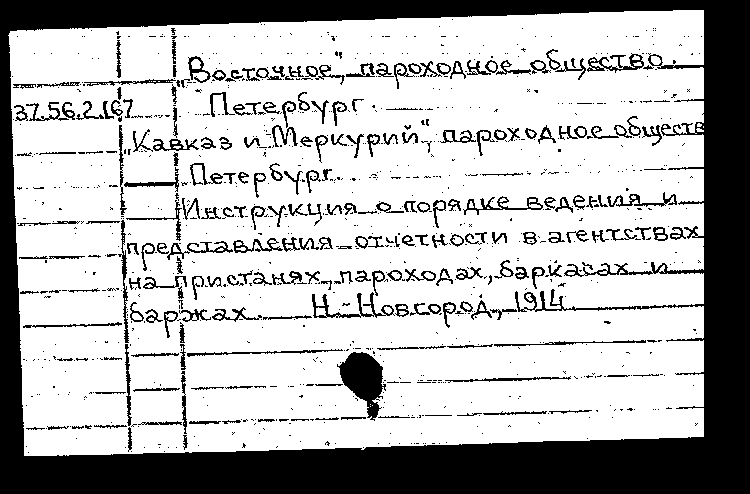 „Восточное", пароходное общество.
37.56.2.167 Петербург.
„Кавказ и Меркурий", пароходное обществ
Петербург.
Инструкция о порядке ведения и
представления отчетности в агентствах
на пристанях, пароходах, баркасах и
баржах. Н.-Новгород, 1914.